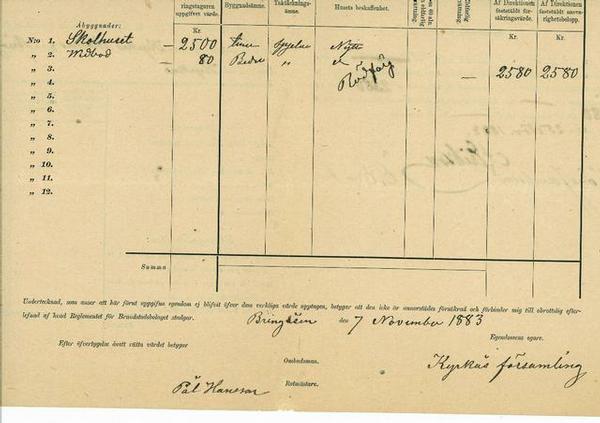 Åbyggnader:
ringstagaren uppgifvet värde.
Byggnadsämne.
Taktäckningsämne.
Husets beskaffenhet.
Af Direktionen fastställdt försäkringsvärde.
Af Direktionen fastställdt ansvarighetsbelopp.
Kr. Kr. Kr.
N:ro 1. Skolhuset — 2500 Timr Nytt
„ 2. Vedbod — 80 „
„ 3. Rödfärg — 2580 2580
„ 4.
„ 5.
„ 6.
„ 7.
„ 8.
„ 9.
„ 10.
„ 11.
„ 12.
Summa
Undertecknad, som anser att här förut uppgifne egendom ej blifvit öfver dess verkliga värde upptagen, betyger att den icke är annorstädes försäkrad och förbinder mig till obrottslig efter-
lefnad af hvad Reglementet för Brandstodsbolaget stadgar.
Bringåsen den 7 November 1883
Egendomens egare.
Efter öfvertygelse åsatt rätta värdet betyger
Kyrkås församling
Ombudsman.
Pål Hansson Rotmästare.